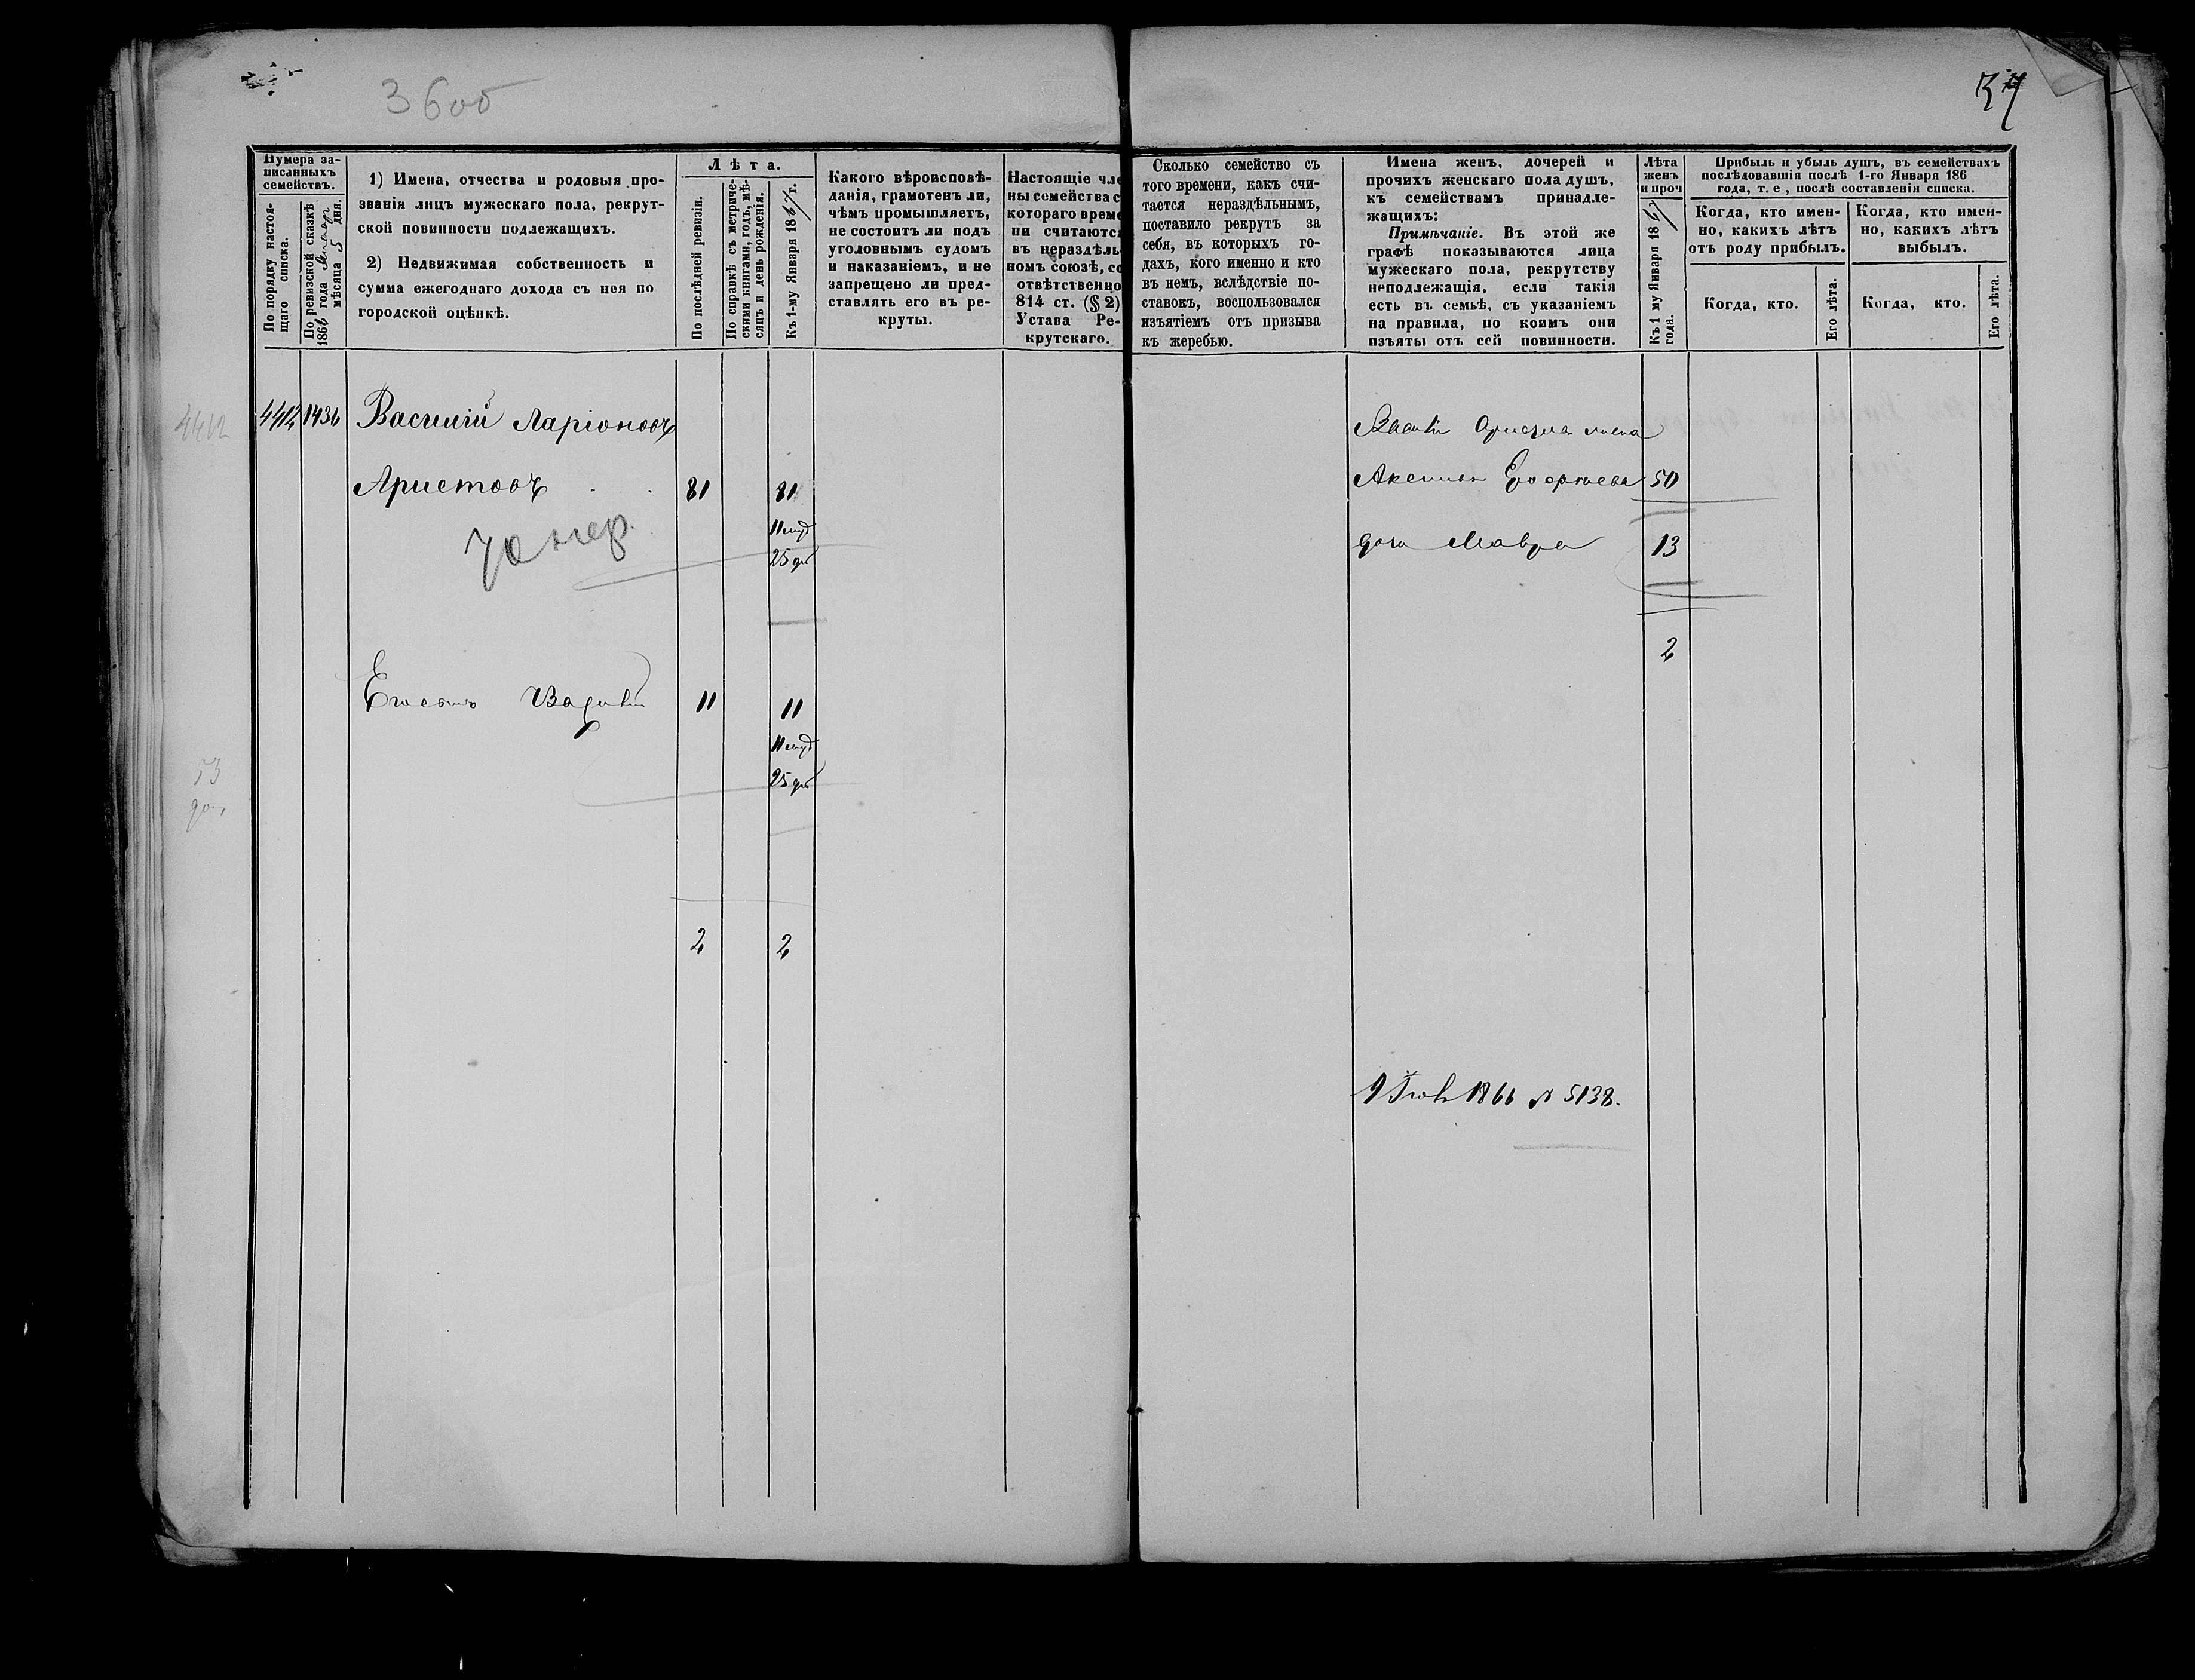 36об
37
Нумера за-
писанныхъ
семействъ.
По порядку настоя-
щаго списка.
По ревизской сказкѣ
186 года
мѣсяца 5 дня.
1) Имена, отчества и родовыя про-
званія лицъ мужескаго пола, рекрут-
ской повинности подлежащихъ.
2) Недвижимая собственность и
сумма ежегоднаго дохода съ нея по
городской оцѣнкѣ.
Лѣта.
По послѣдней ревизіи.
По справкѣ съ метриче-
скими книгами, годъ, мѣ-
сяцъ и день рожденія.
Къ 1-му Января 1867 г.
Какого вѣроисповѣ-
данія, грамотенъ ли,
чѣмъ промышляетъ,
не состоитъ ли подъ
уголовнымъ судомъ
и наказаніемъ, и не
запрещено ли пред-
ставлять его въ ре-
круты.
Настоящіе чле
ны семейства с
котораго време
ни считаются
въ нераздѣль-
номъ союзѣ, со
отвѣтственно
814 ст. (§ 2)
Устава Ре-
крутскаго.
Сколько семейство съ
того времени, какъ счи-
тается нераздѣльнымъ,
поставило рекрутъ за
себя, въ которыхъ го-
дахъ, кого именно и кто
въ немъ, вслѣдствіе по-
ставокъ, воспользовался
изъятіемъ отъ призыва
къ жеребью.
Имена женъ, дочерей и
прочихъ женскаго пола душъ,
къ семействамъ принадле-
жащихъ:
Примѣчаніе. Въ этой же
графѣ показываются лица
мужескаго пола, рекрутству
неподлежащія, если такія
есть въ семьѣ, съ указаніемъ
на правила, по коимъ они
изъяты отъ сей повинности.
Лѣта
женъ
и проч
Къ 1 му Января 1867
года.
Прибыль и убыль душъ, въ семействахъ
послѣдовавшія послѣ 1-го Января 186
года, т. е, послѣ составленія списка.
Когда, кто имен-
но, какихъ лѣтъ
отъ роду прибылъ.
Когда, кто имен-
но, какихъ лѣтъ
выбылъ.
Когда, кто.
Его лѣта.
Когда, кто.
Его лѣта.
4412
4412 1436 Василій Ларіоновъ
Аристовъ 81 81
11 мѣс
25 дн
Аксинья 50
дочь Мавра 13
2
Его сынъ 11 11
11 мѣс
25 дн
53
2 2
1866 № 5138.